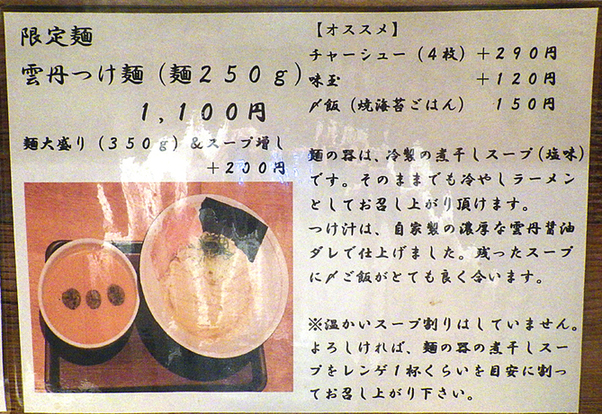 限定麺
雲丹つけ麺（麺２５０ｇ）
１，１００円
麺大盛り（３５０ｇ）＆スープ増し
＋２００円
【オススメ】
チャーシュー（４枚）＋２９０円
味玉　＋１２０円
〆飯（焼海苔ごはん）　１５０円
麺の器は、冷製の煮干しスープ（塩味）
です。そのままでも冷やしラーメン
としてお召し上がり頂けます。
つけ汁は、自家製の濃厚な雲丹醤油
ダレで仕上げました。残ったスープ
に〆ご飯がとても良く合います。
※温かいスープ割りはしていません。
よろしければ、麺の器の煮干しスー
プをレンゲ１杯くらいを目安に割っ
てお召し上がり下さい。